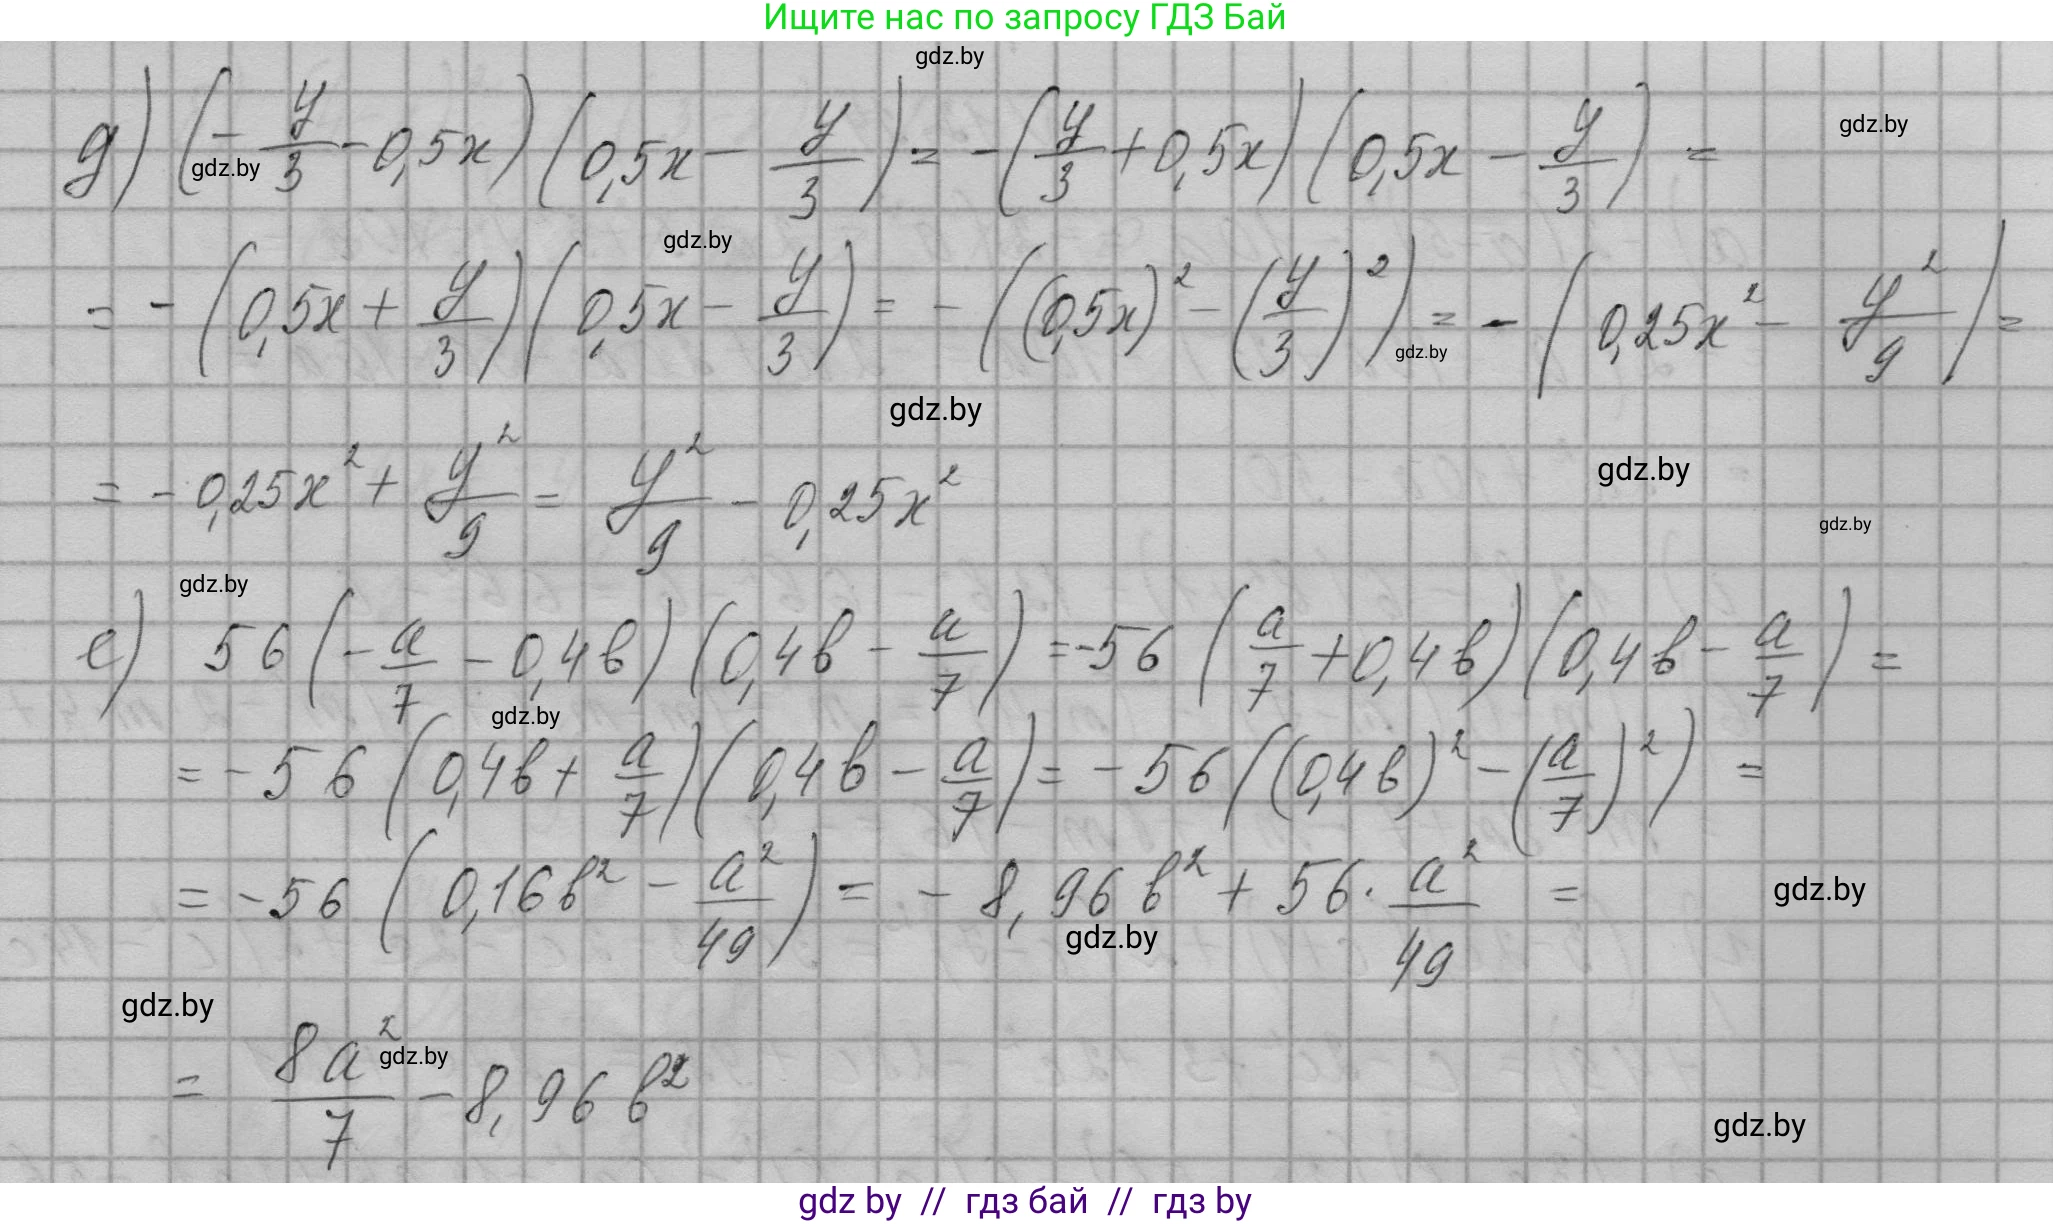 Ищите нас по запросу ГДЗ Бай
gdz.by
д) (- y/3 - 0,5x) (0,5x - y/3) = - (y/3 + 0,5x) (0,5x - y/3) =
gdz.by
gdz.by
gdz.by
= - (0,5x + y/3) (0,5x - y/3) = - ((0,5x)² - (y/3)²) = - (0,25x² - y²/9) =
gdz.by
gdz.by
= - 0,25x² + y²/9 = y²/9 - 0,25x²
gdz.by
gdz.by
gdz.by
е) 56 (- a/7 - 0,4b) (0,4b - a/7) = -56 (a/7 + 0,4b) (0,4b - a/7) =
gdz.by
= - 56 (0,4b + a/7) (0,4b - a/7) = - 56 ((0,4b)² - (a/7)²) =
= - 56 (0,16b² - a²/49) = - 8,96 b² + 56 · a²/49 =
gdz.by
gdz.by
gdz.by
= 8a²/7 - 8,96 b²
gdz.by
gdz.by
gdz by // гдз бай // гдз by